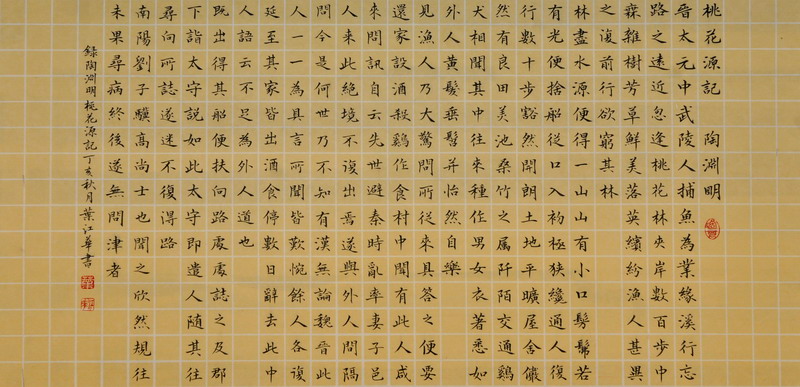 桃花源記 陶淵明
晉太元中武陵人捕魚為業緣溪行忘
路之遠近忽逢桃花林夾岸數百步中
無雜樹芳草鮮美落英繽紛漁人甚異
之復前行欲窮其林
林盡水源便得一山山有小口髣髴若
有光便捨船從口入初極狹纔通人復
行數十步豁然開朗土地平曠屋舍儼
然有良田美池桑竹之属阡陌交通鷄
犬相聞其中往來種作男女衣著悉如
外人黃髮垂髫并怡然自樂
見漁人乃大驚問所從來具答之便要
還家設酒殺鷄作食村中聞有此人咸
來問訊自云先世避秦時亂率妻子邑
人來此絶境不復出焉遂與外人間隔
問今是何世乃不知有漢無論魏晉此
人一一為具言所聞皆歎惋餘人各復
延至其家皆出酒食停數日辭去此中
人語云不足為外人道也
既出得其船便扶向路處處誌之及郡
下詣太守説如此太守即遣人随其往
尋向所誌遂迷不復得路
南陽劉子驥高尚士也聞之欣然規往
未果尋病終後遂無問津者
錄陶淵明桃花源記丁亥秋月葉江華書